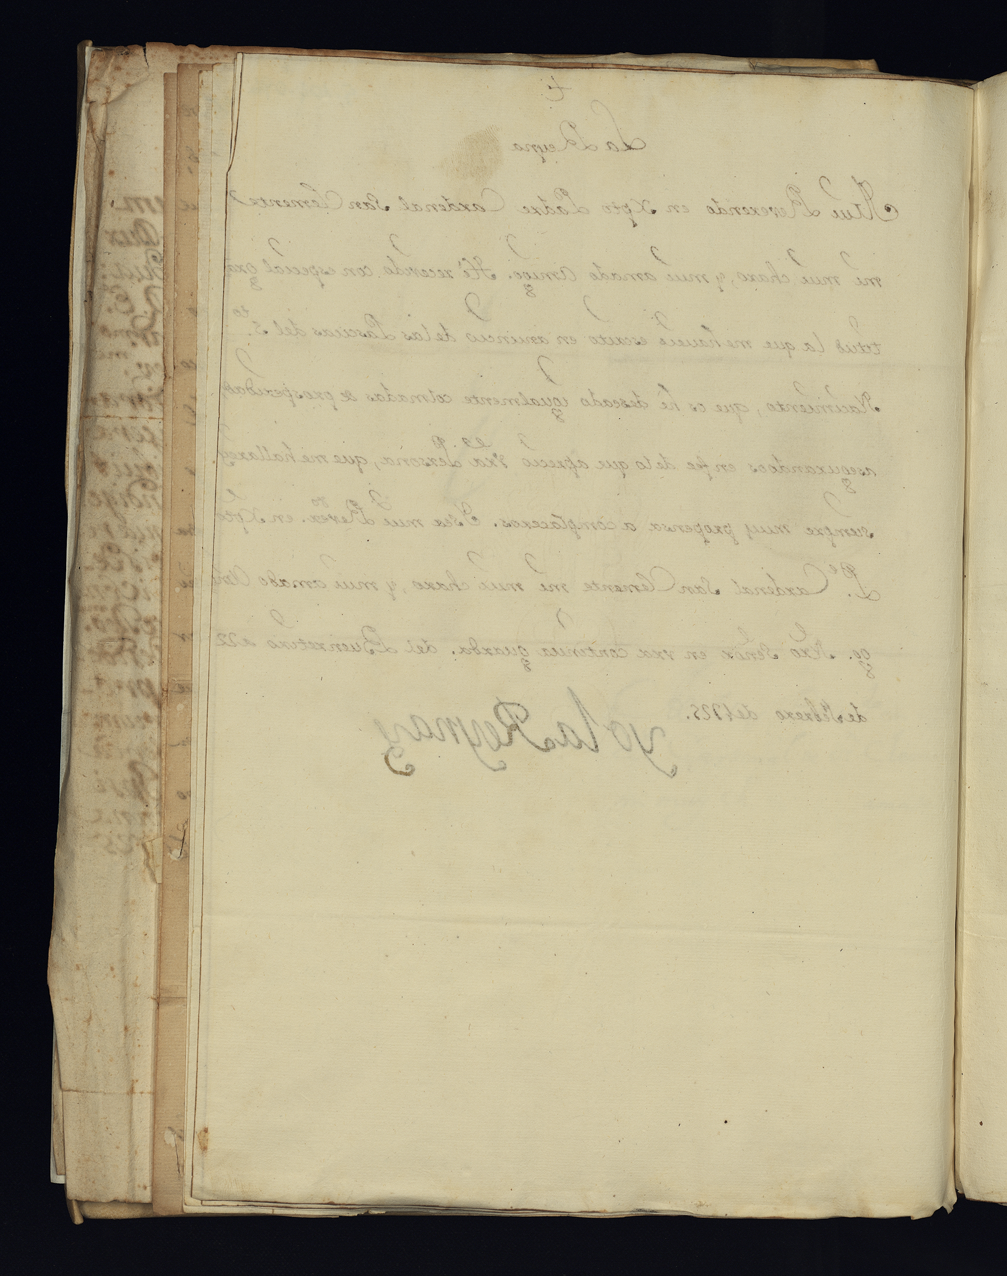 La Reyna
Mui Reverendo en Xpto Padre Cardenal San Clemente
mi mui charo, y mui amado Amigo. Hé recevido con especial gra
titud la que me haveis escrito en anuncio de las Pascuas del S.to
Nacimiento, que os hé deseado igualmente colmadas de prosperidades
asegurandoos en fe de lo que aprecio vra Persona, que me hallareis
siempre muy propensa a complaceros. Y sea mui Rev.do en Xpto
P.e Cardenal San Clemente mi mui charo, y mui amado Ami
go. Nro Señor en vra continua guarda. del Buen retiro a 22
de Febrero de 1725.
yo la Reyna